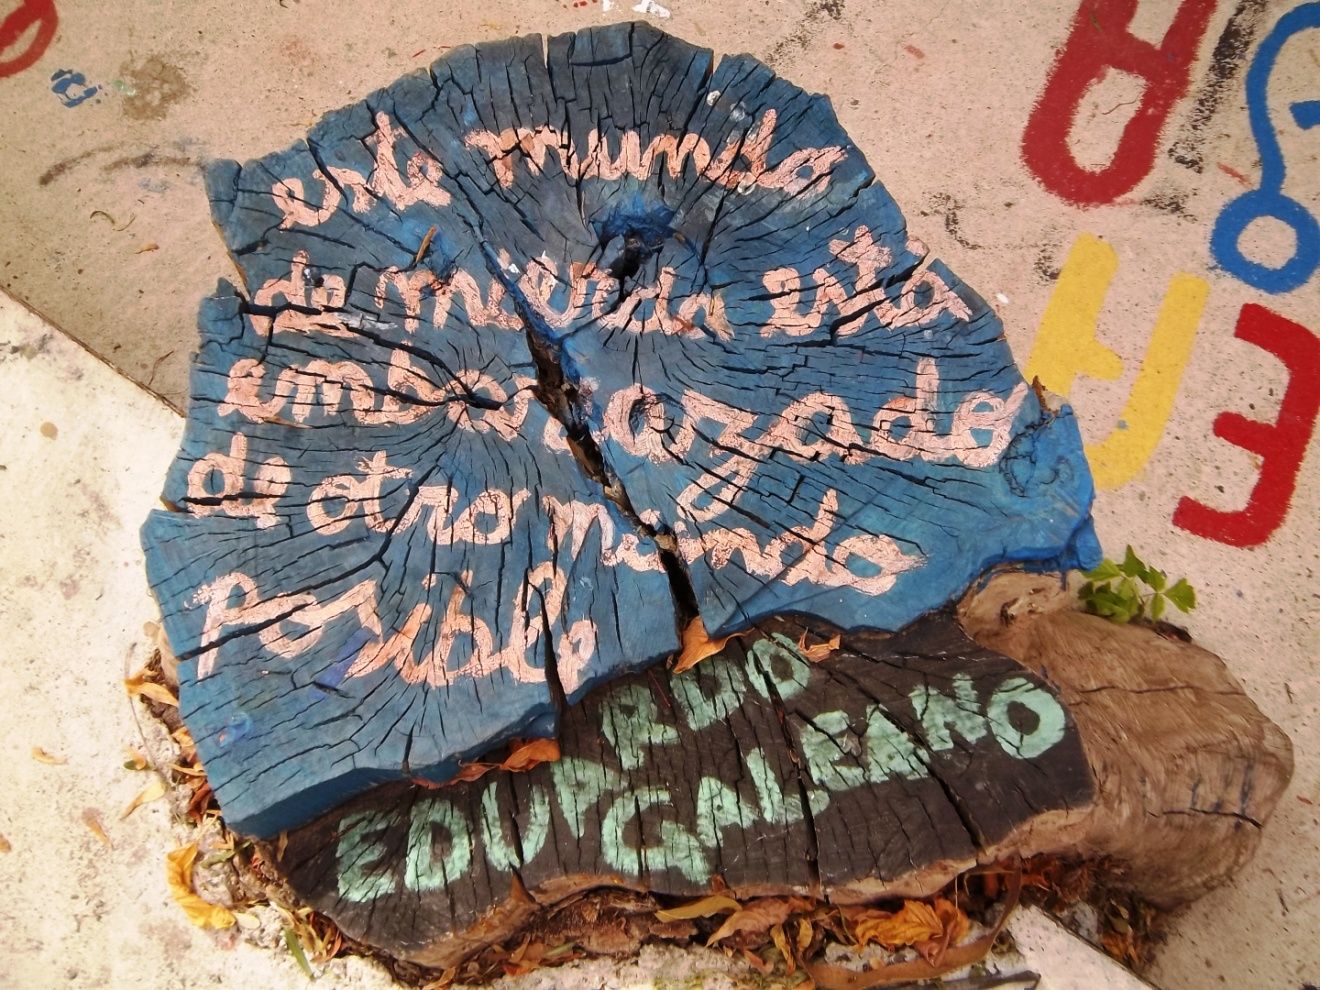 este mundo
de mierda está
embarazado
de otro mundo
Posible
EDUARDO
GALEANO